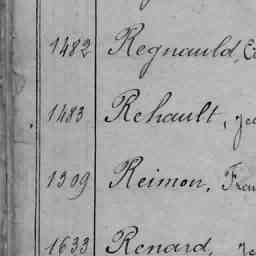 1482 Regnauld,
1483 Rehault,
1309 Reimon,
1633 Renard,